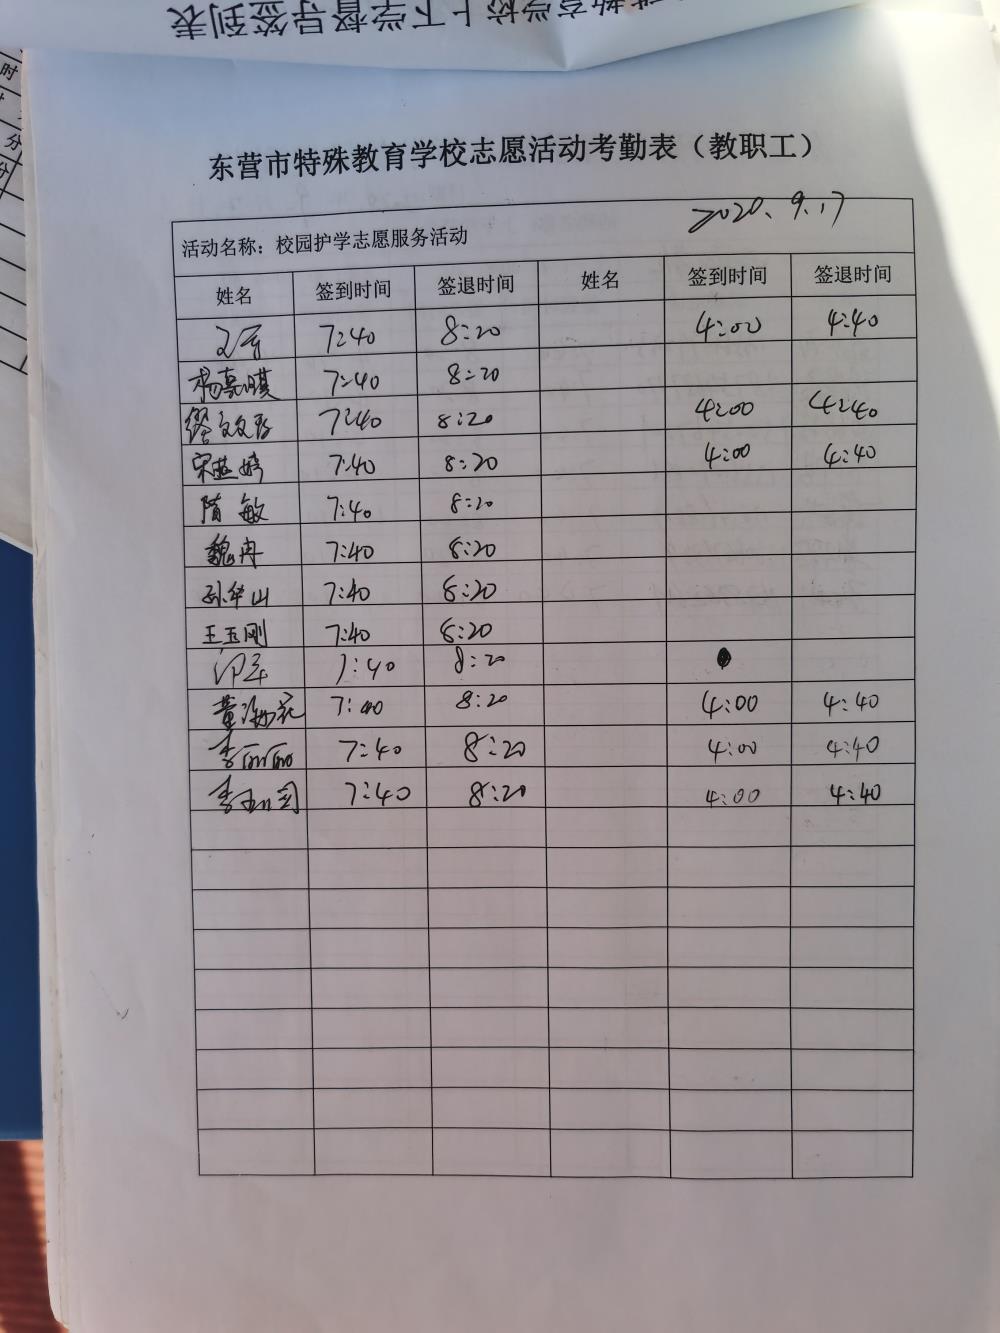 东营市特殊教育学校志愿活动考勤表（教职工）
2020.9.17
活动名称：校园护学志愿服务活动
姓名 签到时间 签退时间 姓名 签到时间 签退时间
7:40 8:20 4:00 4:40
杨嘉琪 7:40 8:20
缪文文 7:40 8:20 4:00 4:40
宋燕婷 7:40 8:20 4:00 4:40
隋敏 7:40 8:20
魏冉 7:40 8:20
孙华山 7:40 8:20
王玉刚 7:40 8:20
7:40 8:20
董海 7:40 8:20 4:00 4:40
李丽丽 7:40 8:20 4:00 4:40
李 7:40 8:20 4:00 4:40